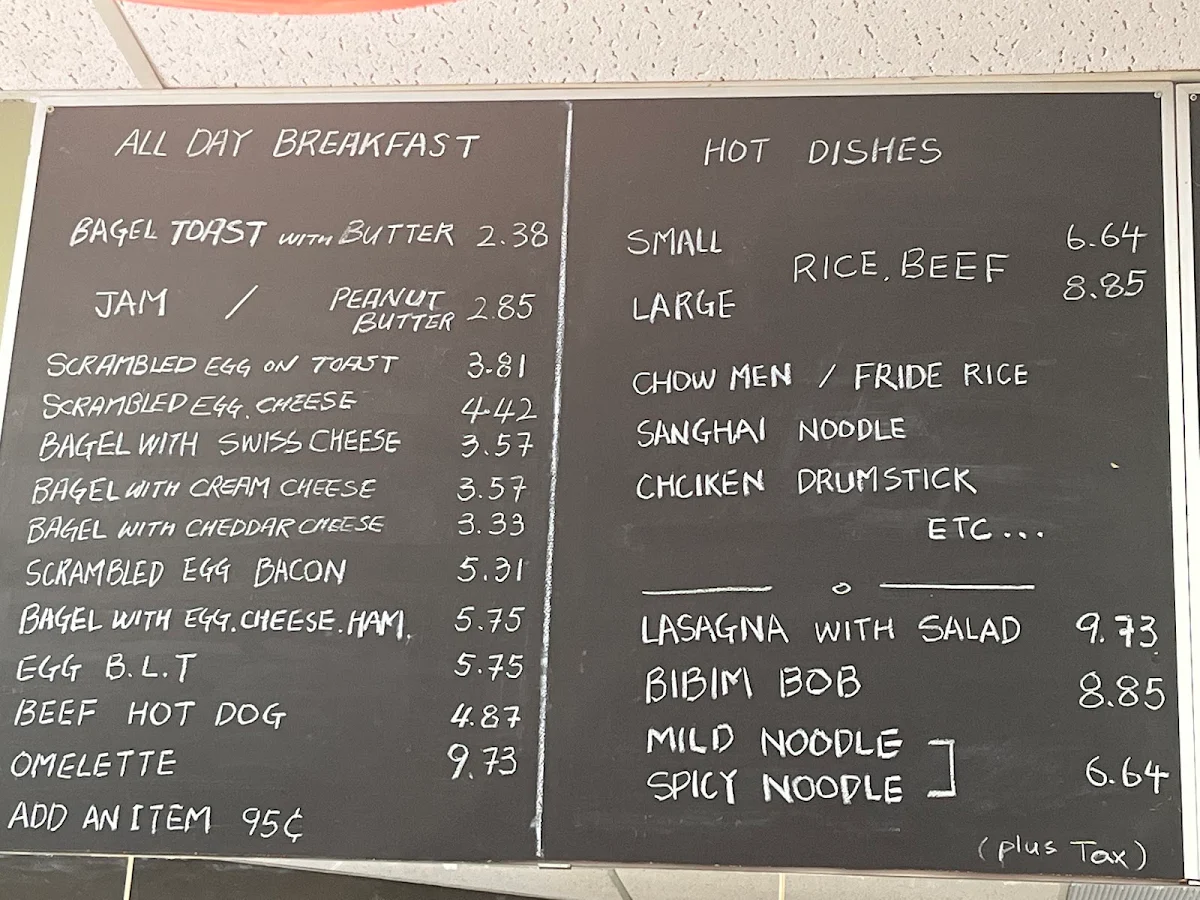 ALL DAY BREAKFAST
BAGEL TOAST WITH BUTTER 2.38
JAM / PEANUT BUTTER 2.85
SCRAMBLED EGG ON TOAST 3.81
SCRAMBLED EGG. CHEESE 4.42
BAGEL WITH SWISS CHEESE 3.57
BAGEL WITH CREAM CHEESE 3.57
BAGEL WITH CHEDDAR CHEESE 3.33
SCRAMBLED EGG BACON 5.31
BAGEL WITH EGG.CHEESE.HAM. 5.75
EGG B.L.T 5.75
BEEF HOT DOG 4.87
OMELETTE 9.73
ADD AN ITEM 95¢
HOT DISHES
SMALL 6.64
RICE, BEEF
LARGE 8.85
CHOW MEN / FRIDE RICE
SANGHAI NOODLE
CHCIKEN DRUMSTICK
ETC...
LASAGNA WITH SALAD 9.73
BIBIM BOB 8.85
MILD NOODLE
SPICY NOODLE ] 6.64
(plus Tax)